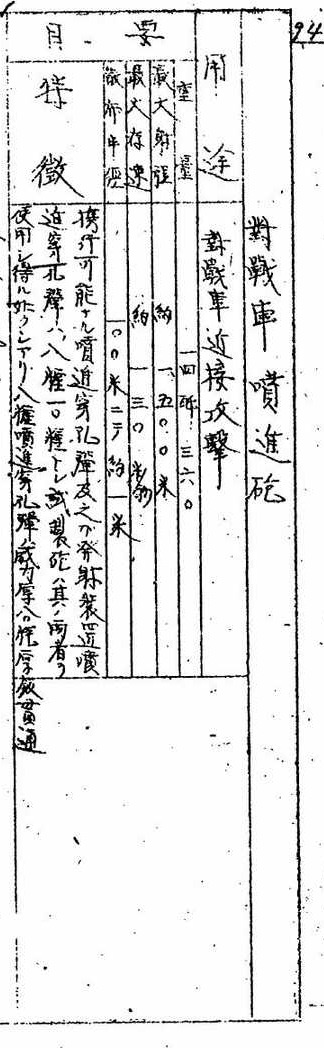 94
對戰車噴進砲
用途 對戰車近接攻擊
要目
全量 一四瓩三六〇
最大射程 約一、五〇〇米
最大存速 約一三〇米/秒
散布半径 一〇〇米ニテ約一米
特徴
携行可能ナル噴進穿孔彈及之ガ発射装置噴
進穿孔彈ハ八糎一〇糎トシ試製砲ハ其ノ両者ヲ
使用シ得ル如クシアリ八糎噴進穿孔彈ノ威力厚八糎厚鈑貫通